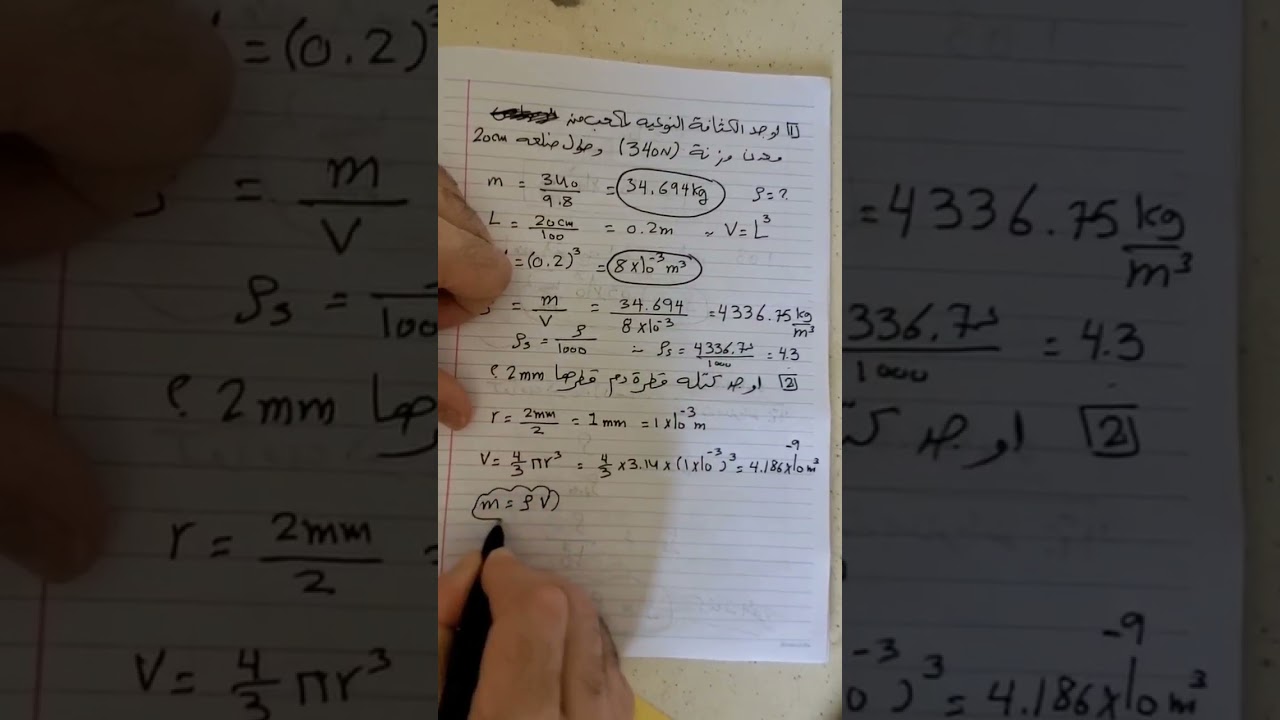 1 اوجد الكثافة النوعية لمكعب من
معدن وزنة (340N) وطول ضلعه 20cm
m = 340/9.8 = 34.694kg ρ = ?
L = 20cm/100 = 0.2m ∴ V = L³
= (0.2)³ = 8×10⁻³ m³
= m/V = 34.694/8×10⁻³ = 4336.75 kg/m³
ρs = ρ/1000 ∴ ρs = 4336.75/1000 = 4.3
2 اوجد كتلة قطرة دم قطرها 2mm ؟
r = 2mm/2 = 1mm = 1×10⁻³ m
V = 4/3 πr³ = 4/3 × 3.14 × (1×10⁻³)³ = 4.186×10⁻⁹ m³
m = ρV